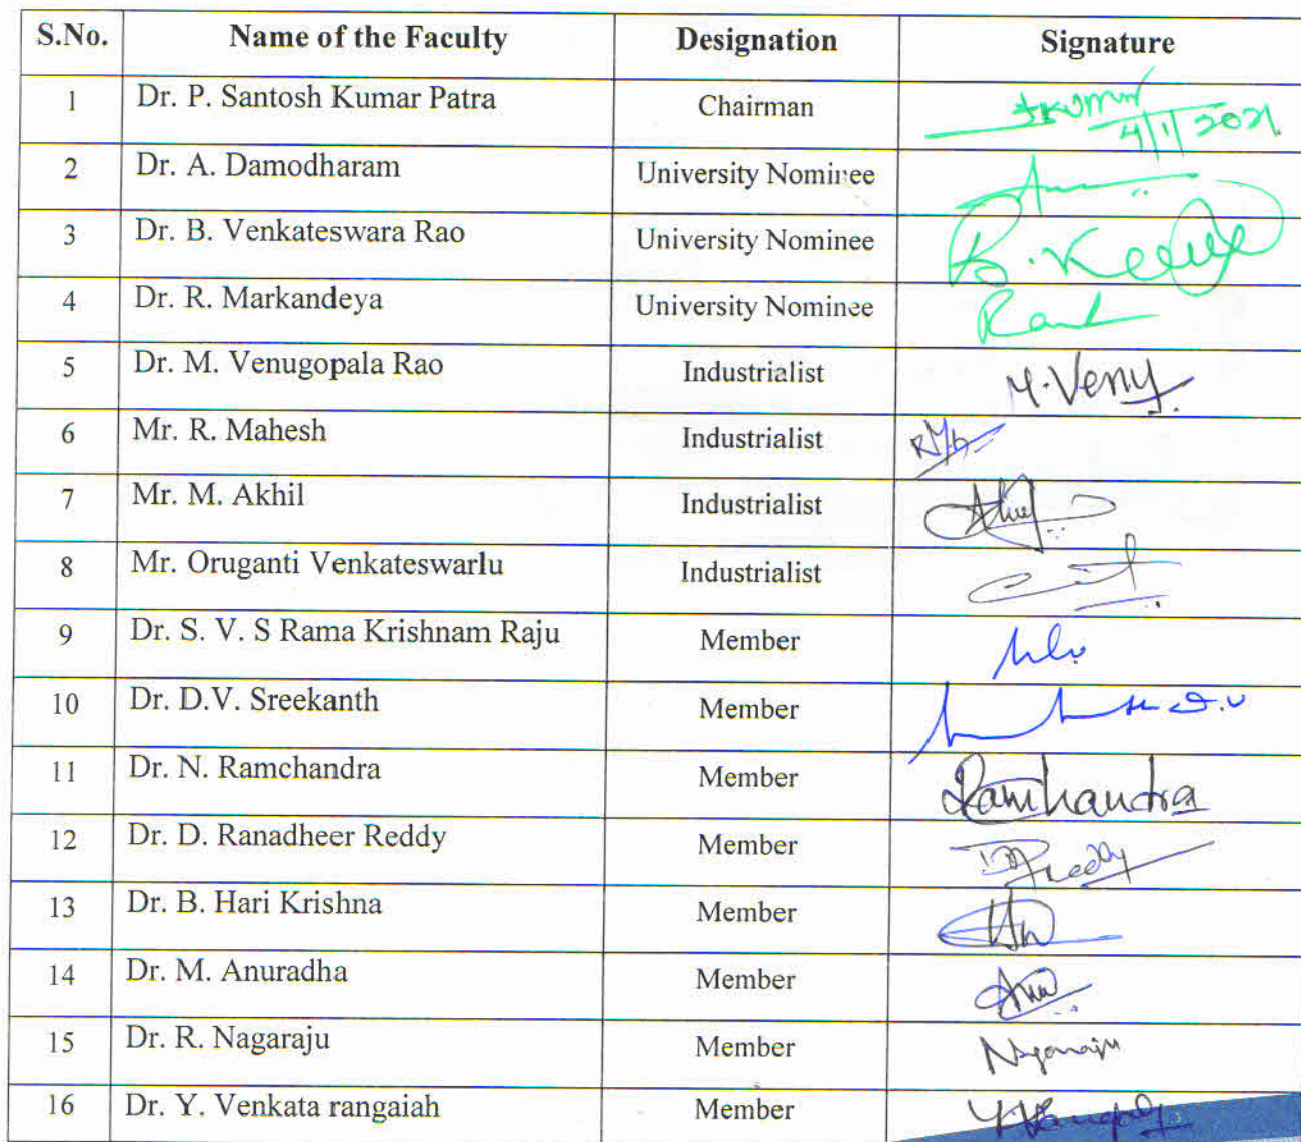 S.No. Name of the Faculty Designation Signature
1 Dr. P. Santosh Kumar Patra Chairman 4/1/2021
2 Dr. A. Damodharam University Nominee
3 Dr. B. Venkateswara Rao University Nominee
4 Dr. R. Markandeya University Nominee
5 Dr. M. Venugopala Rao Industrialist M.Venu
6 Mr. R. Mahesh Industrialist
7 Mr. M. Akhil Industrialist
8 Mr. Oruganti Venkateswarlu Industrialist
9 Dr. S. V. S Rama Krishnam Raju Member
10 Dr. D.V. Sreekanth Member
11 Dr. N. Ramchandra Member Ramchandra
12 Dr. D. Ranadheer Reddy Member
13 Dr. B. Hari Krishna Member
14 Dr. M. Anuradha Member
15 Dr. R. Nagaraju Member Nagaraju
16 Dr. Y. Venkata rangaiah Member